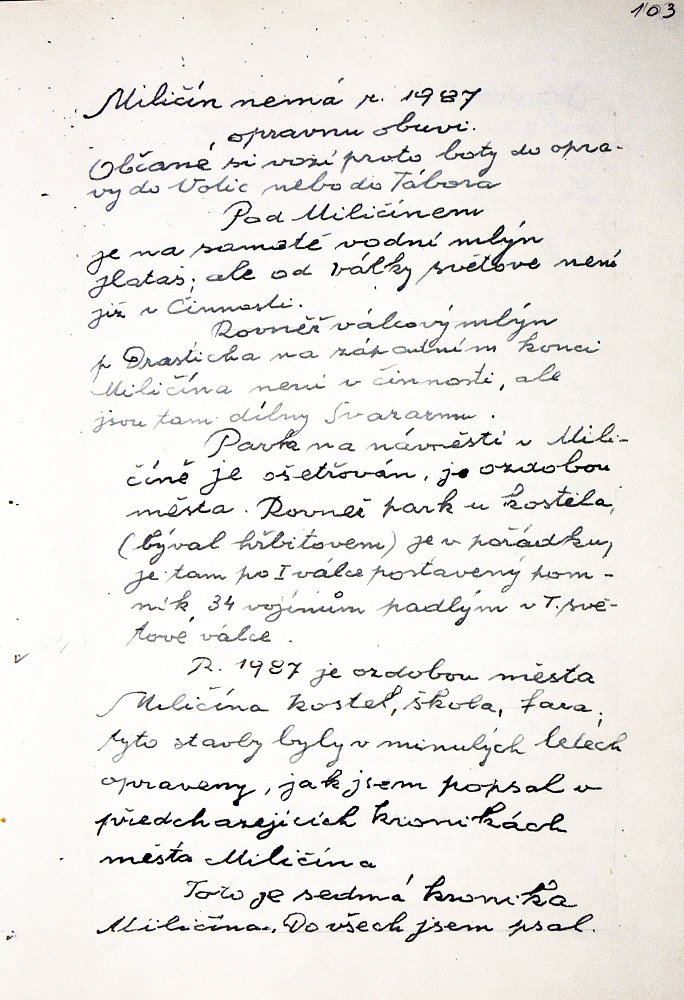 103
Miličín nemá r. 1987
opravnu obuvi.
Občané si vozí proto boty do opra-
vy do Votic nebo do Tábora
Pod Miličínem
je na samotě vodní mlýn
, ale od války světové není
již v činnosti.
Rovněž válcový mlýn
p Drasticha na západním konci
Miličína není v činnosti, ale
jsou tam dílny Svazarmu.
Park na náměstí v Mili-
číně je ošetřován, je ozdobou
města. Rovněž park u kostela,
(býval hřbitovem) je v pořádku,
je tam po I válce postavený pom-
ník 34 vojínům padlým v I. svě-
tové válce.
R. 1987 je ozdobou města
Miličína kostel, škola, fara,
tyto stavby byly v minulých letech
opraveny, jak jsem popsal v
předchazejících kronikách
města Miličína
Toto je sedmá kronika
Miličína. Do všech jsem psal.